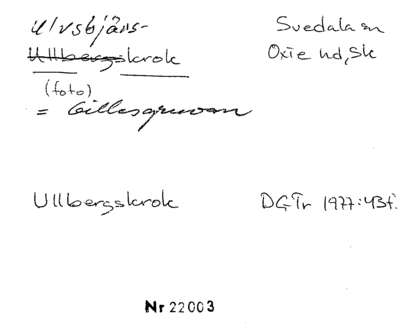 Ulvsbjärs- Svedala sn
Ullbergskrok Oxie hd, Sk
(foto)
= Gillesgruvan
Ullbergskrok DGTr 1977:43f.
Nr 22003